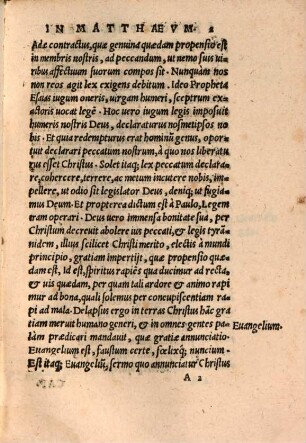 IN MATTHÆVM. 2
Adæ contractus, quæ genuina quædam propensio est
in membris nostris, ad peccandum, ut nemo suis ui-
ribus affectuum suorum compos sit. Nunquam nos
non reos agit lex exigens debitum. Ideo Propheta
Esaias iugum oneris, uirgam humeri, sceptrum exa-
ctoris uocat legē. Hoc uero iugum legis imposuit
humeris nostris Deus, declaraturus nosmetipsos no
bis. Et quia redempturus erat hominū genus, opor-
tuit declarari peccatum nostrum, à quo nos liberatu
rus esset Christus. Solet itaq; lex peccatum declara
re, cohercere, terrere, ac metum incutere nobis, im-
pellere, ut odio sit legislator Deus, deniq; ut fugia-
mus Deum. Et propterea dictum est à Paulo, Legem
iram operari. Deus uero immensa bonitate sua, per
Christum decreuit abolere ius peccati, & legis tyrā-
nidem, illius scilicet Christi merito, electis à mundi
principio, gratiam impertijt, quæ propensio quæ-
dam est, Id est, spiritus rapiēs qua ducimur ad recta,
& uis quædam, per quam tali ardore & animo rapi
mur ad bona, quali solemus per concupiscentiam ra
pi ad mala. Delapsus ergo in terras Christus hāc gra
tiam meruit humano generi, & in omnes gentes pa-
Euangelium.
làm prædicari mandauit, quæ gratiæ annunciatio
Euangelium est, faustum certe, fœlixq; nuncium.
Est itaq; Euangeliū, sermo quo annunciatur Christus
A 2